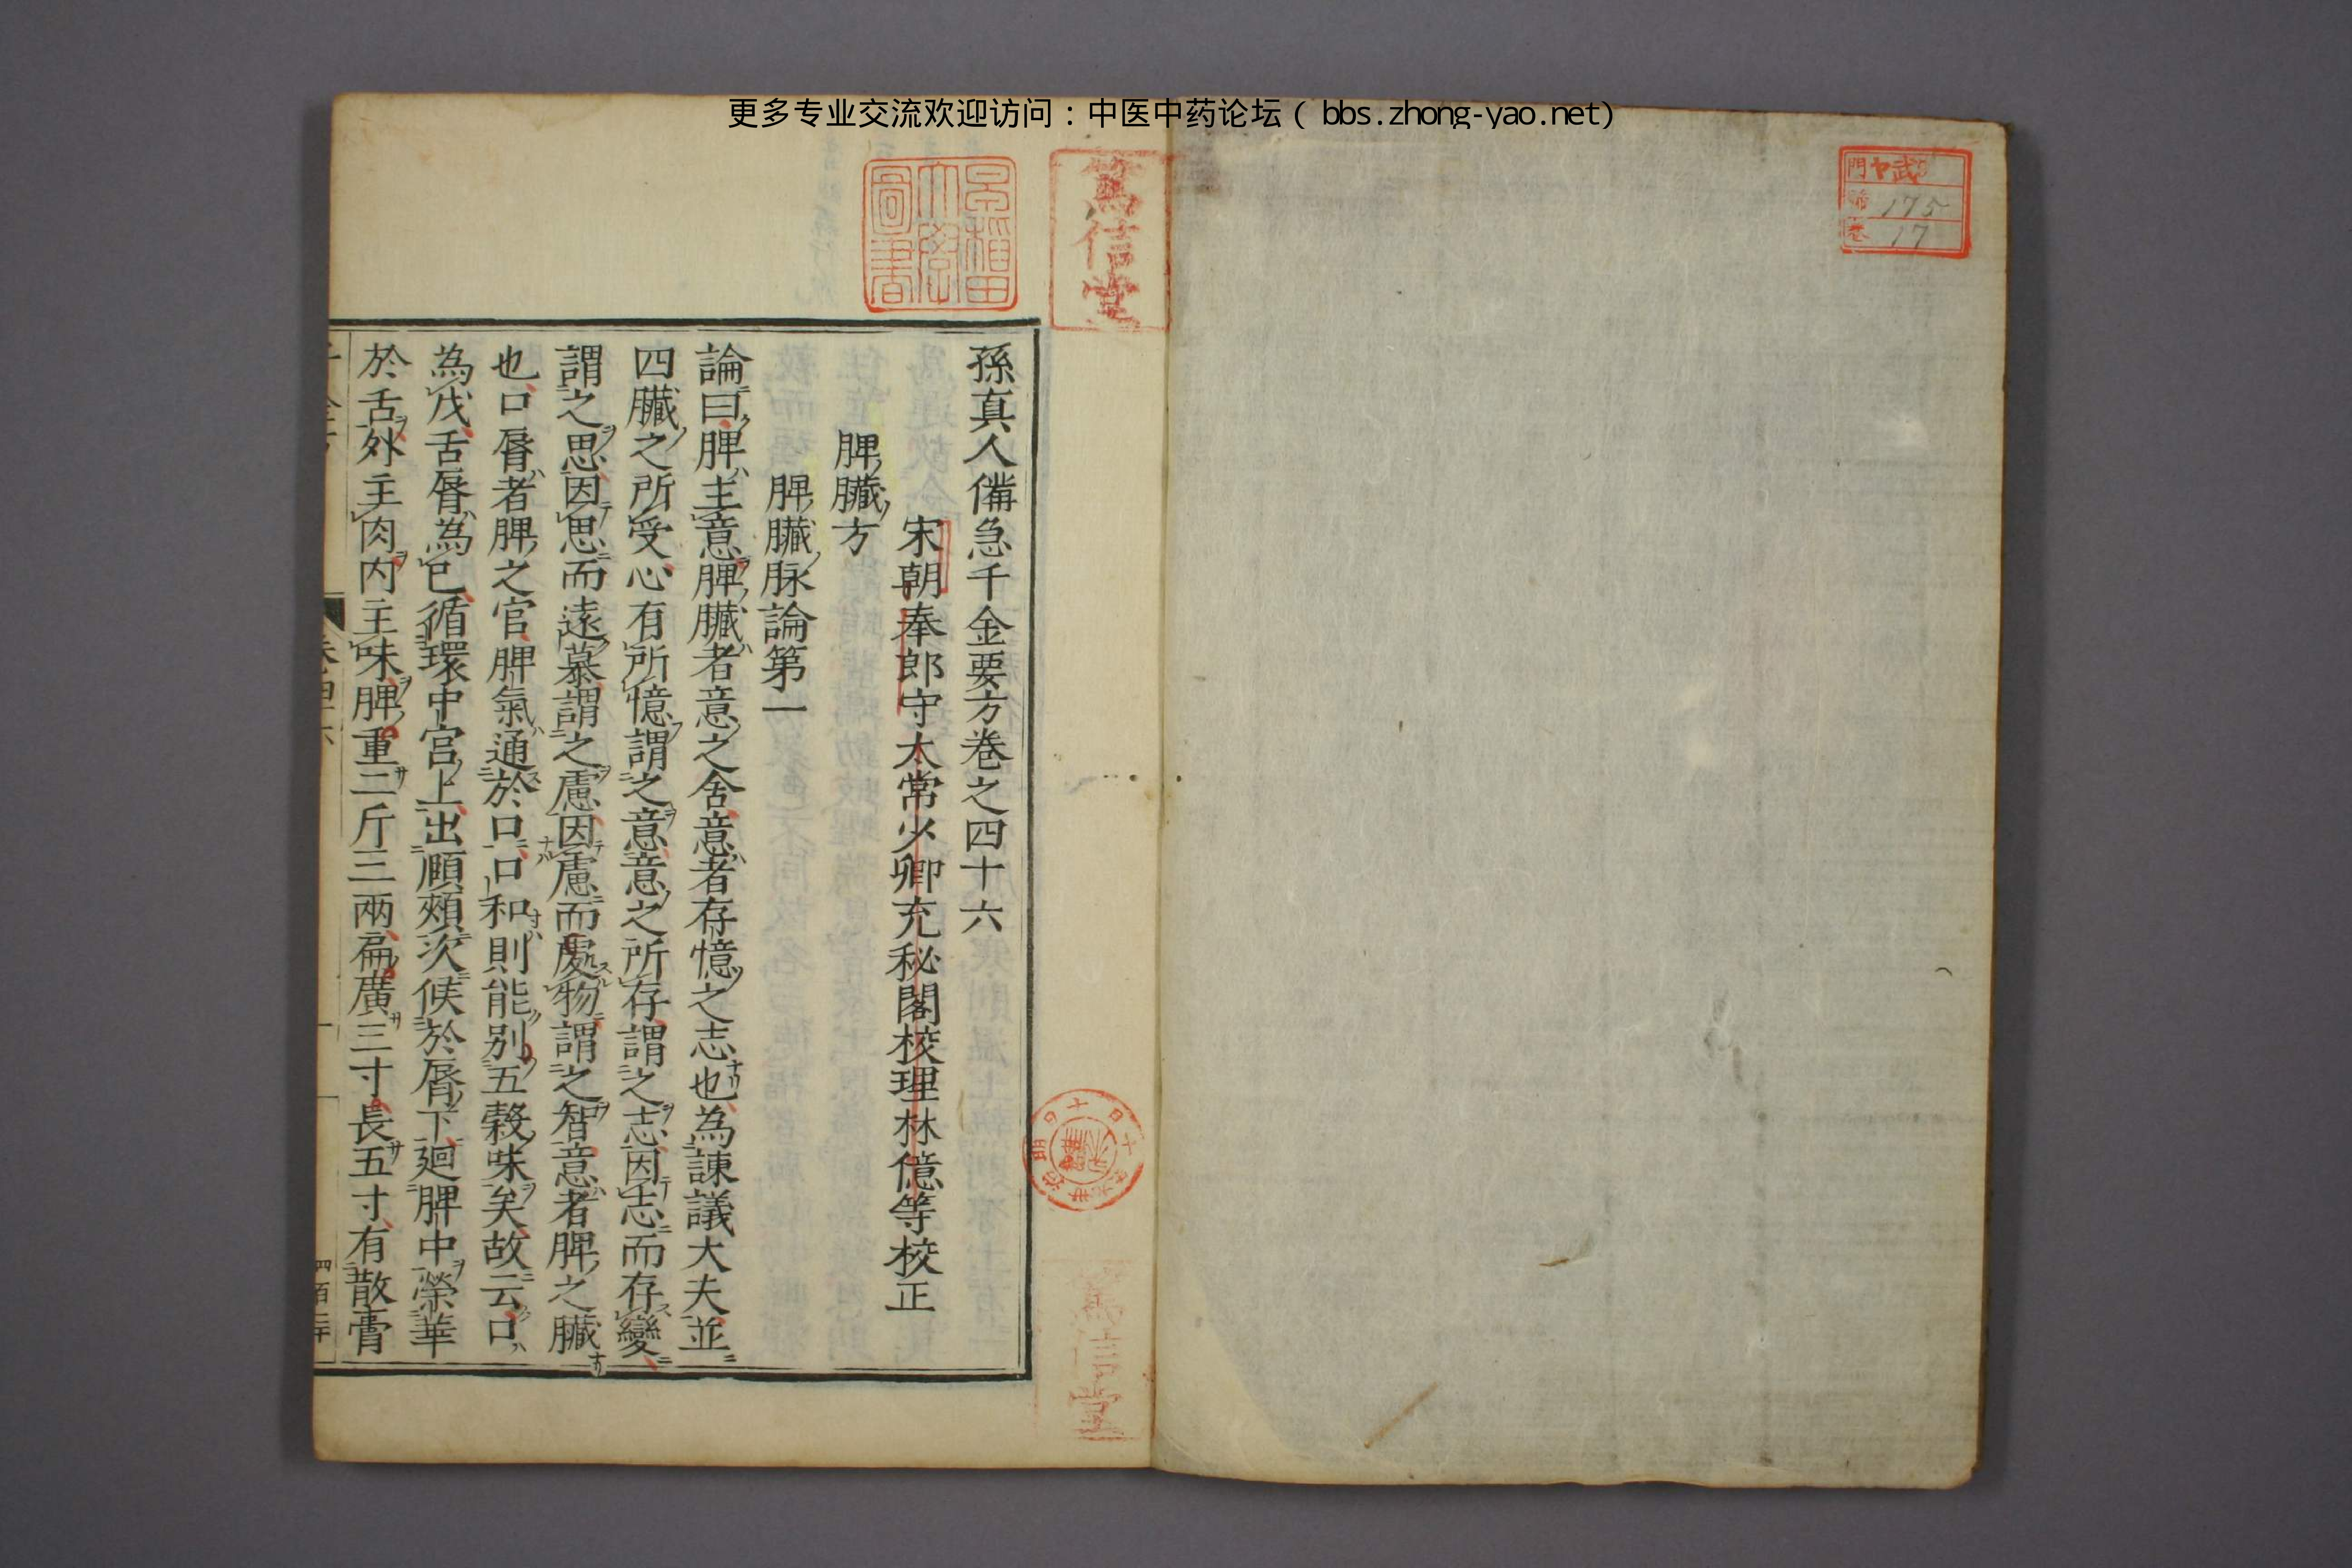 更多专业交流欢迎访问：中医中药论坛（bbs.zhong-yao.net）
門 ヤ武
號 175
卷 17
篤信堂
早稲田大學圖書
孫真人備急千金要方卷之四十六
宋朝奉郎守太常少卿充秘閣校理林億等校正
脾臟方
脾臟脉論第一
論曰脾主意脾臟者意之舍意者存憶之志也為諫議大夫並
四臟之所受心有所憶謂之意意之所存謂之志因志而存變
謂之思因思而遠慕謂之慮因慮而處物謂之智意者脾之臟
也口脣者脾之官脾氣通於口口和則能别五穀味矣故云口
為戊舌脣為已循環中宫上出頤頰次候於脣下廻脾中榮華
於舌外主肉内主味脾重二斤三兩扁廣三寸長五寸有散膏
篤信堂